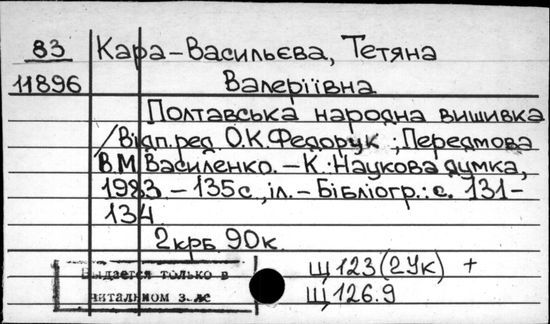 83 Кара-Васильєва, Тетяна
11896 Валеріївна
Полтавська народна вишивка
/Відп.ред. О.К.Федорук ; Передмова
В.М. Василенко. – К.: Наукова думка,
1983. – 135с., іл. – Бібліогр.: с. 131-
134.
2крб. 90к.
Щ123(2Ук) +
Щ126.9
Выдается только в
читальном зале